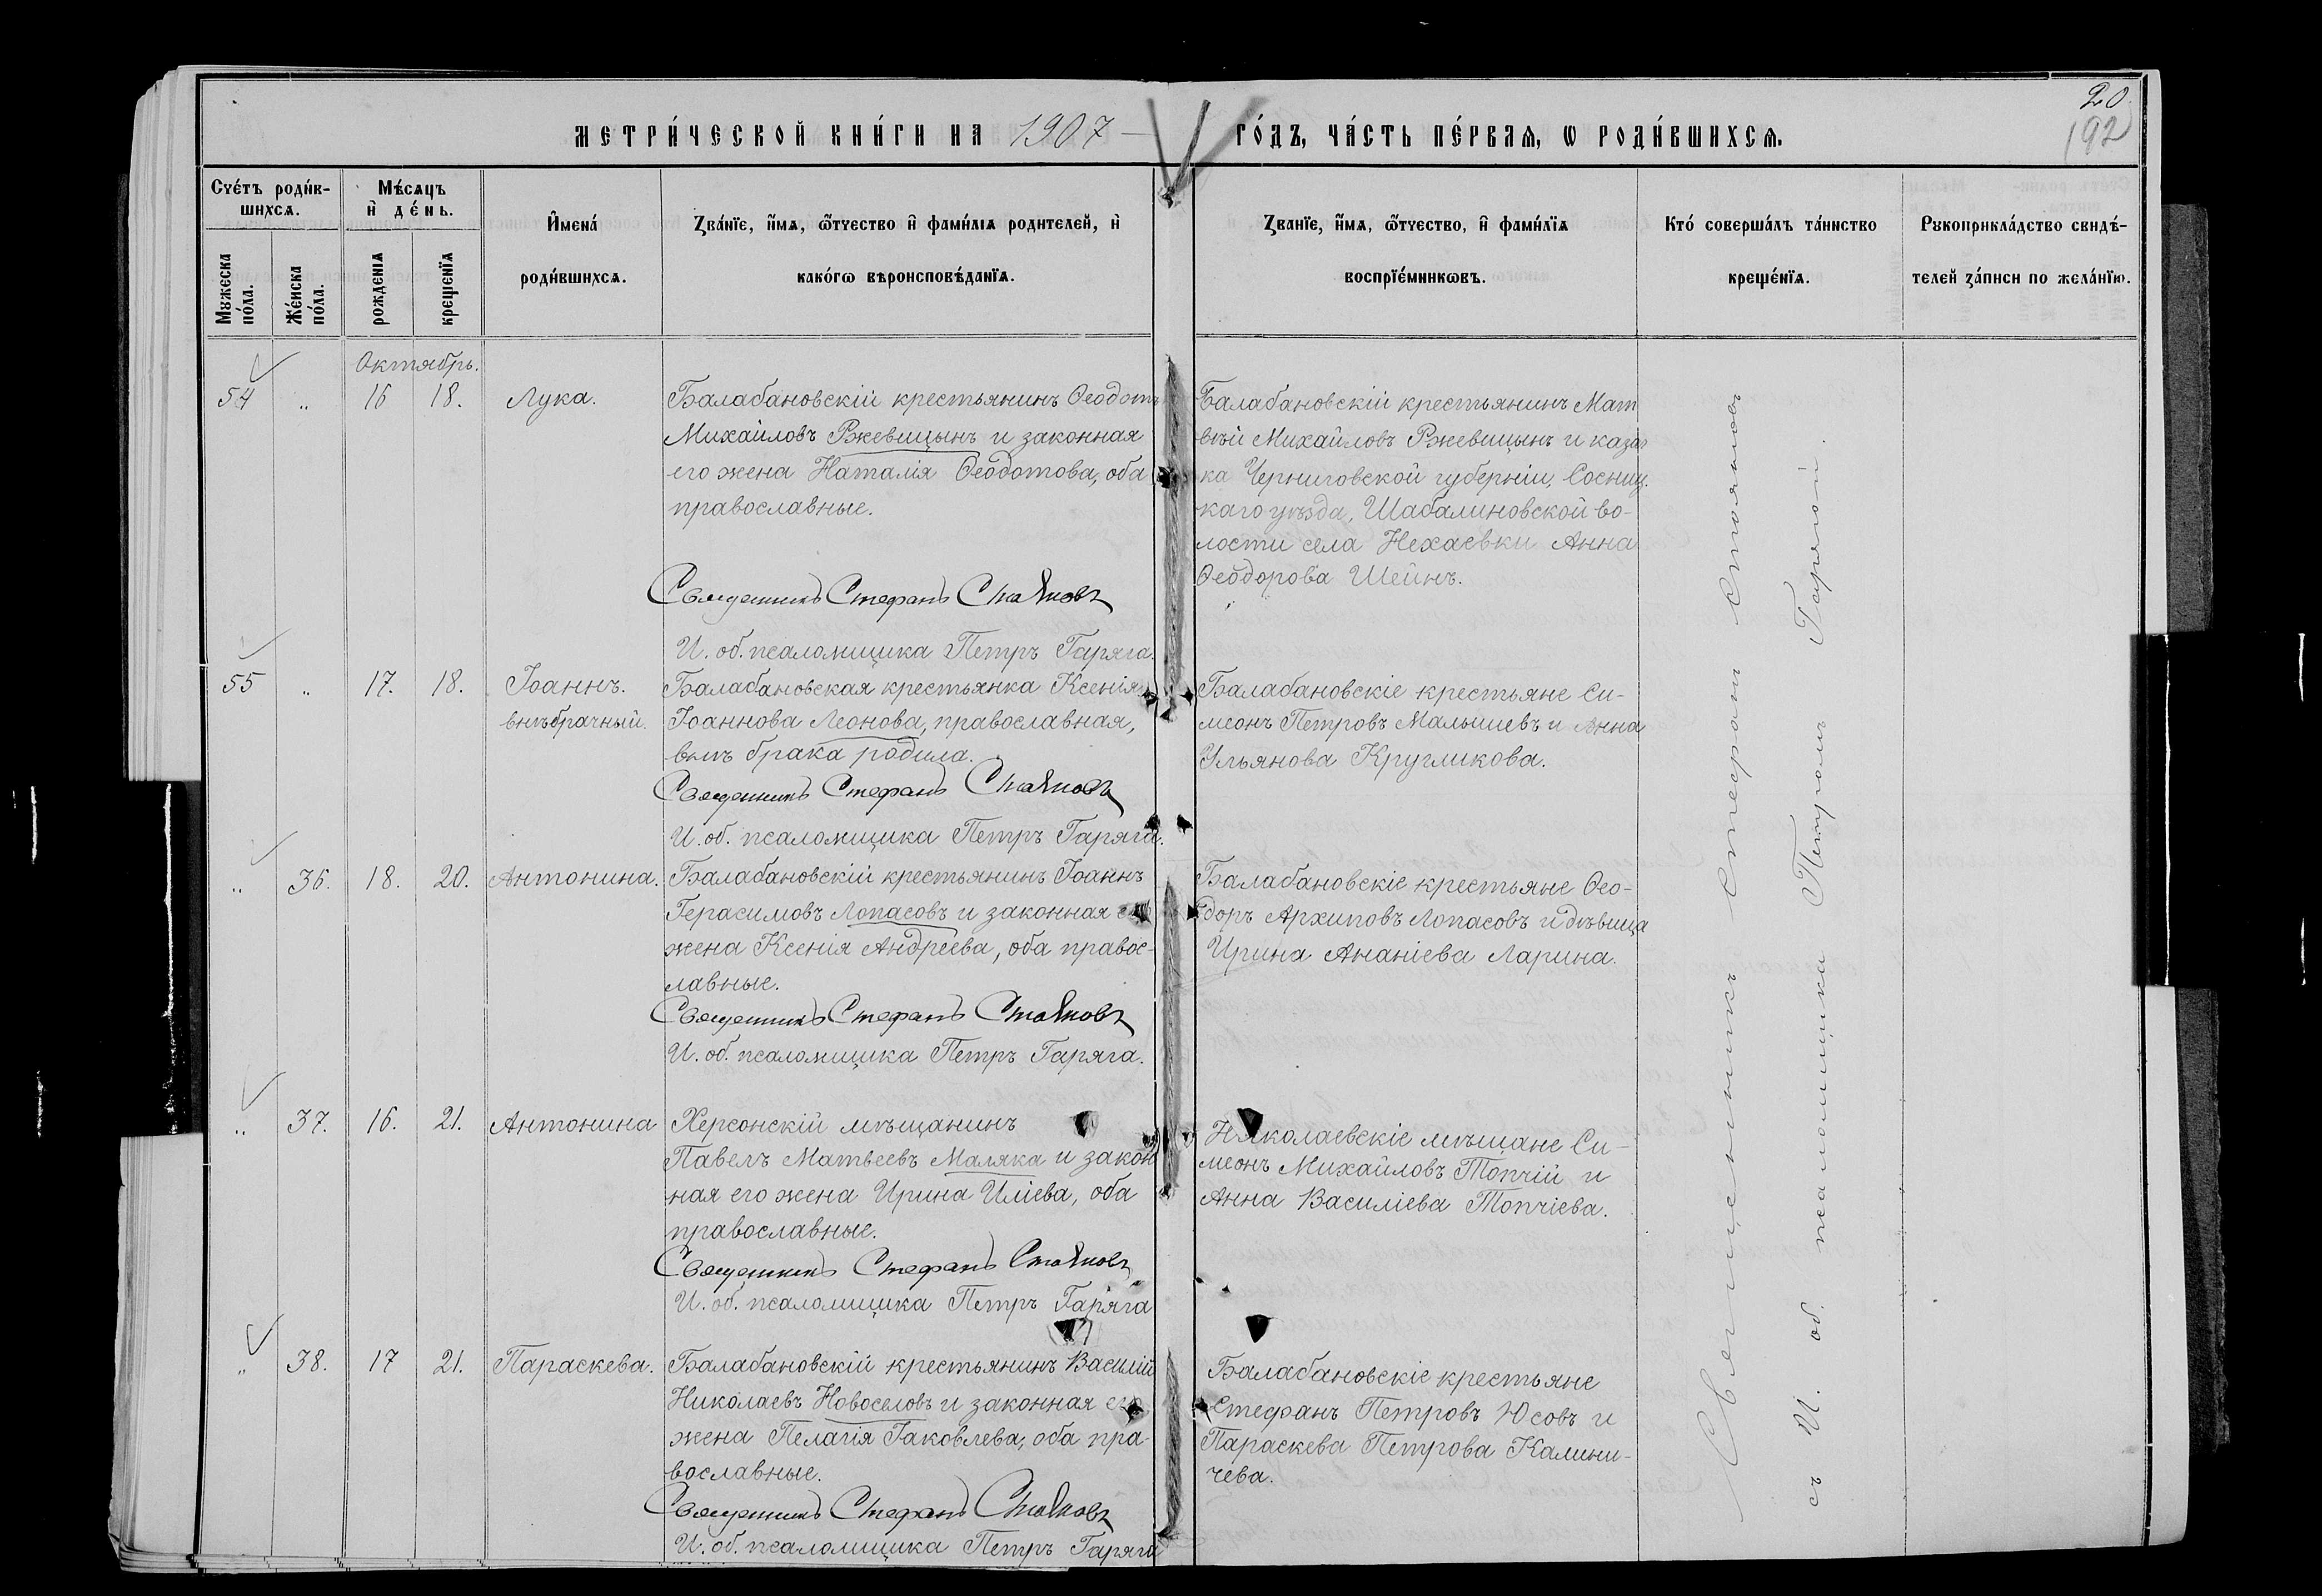 20.
192
МЕТРИ́ЧЕСКОЙ КНИ́ГИ НА 1907 ГО́ДЪ, ЧА́СТЬ ПЕ́РВАѦ, Ѡ РОДИ́ВШИХСѦ.
Сче́тъ роди́в-
шихсѧ.
Мꙋжеска
по́ла.
Же́нска
по́ла.
Мѣ́сѧцъ
и҆ де́нь.
рожденїѧ
крещенїѧ
И҆мена́
роди́вшихсѧ.
Ꙁва́нїе, и҆́мѧ, ѻ҆́тчество и҆ фами́лїѧ родителей, и҆
како́гѡ вѣроисповѣ́данїѧ.
Ꙁванїе, и҆́мѧ, ѻ҆́тчество, и҆ фами́лїѧ
воспрїе́мникѡвъ.
Кто́ соверша́лъ та́инство
креще́нїѧ.
Рꙋкоприкла́дство свидѣ́-
телей ꙁа́писи по жела́нїю.
Октябрь.
54 „ 16 18. Лука.
Балабановскій крестьянинъ Ѳеодотъ
Михайловъ Ржевицынъ и законная
его жена Наталія Ѳеодотова, оба
православные.
Священникъ Стефанъ Стояновъ
И. об. псаломщика Петръ Гаряга.
Балабановскій крестьянинъ Мат
вѣй Михайловъ Ржевицынъ и казач
ка Черниговской губерніи, Сосниц.
каго уѣзда, Шабалиновской во-
лости села Нехаевки Анна
Ѳеодорова Шейнъ.
55 „ 17. 18. Іоаннъ.
внѣбрачный.
Балабановская крестьянка Ксенія
Іоаннова Леонова, православная,
внѣ брака родила.
Священникъ Стефанъ Стояновъ
И. об. псаломщика Петръ Гаряга.
Балабановскіе крестьяне Си-
меонъ Петровъ Малышевъ и Анна
Ульянова Кругликова.
„ 36. 18. 20. Антонина.
Балабановскій крестьянинъ Іоаннъ
Герасимовъ Лопасовъ и законная его
жена Ксенія Андреева, оба правос-
лавные.
Священникъ Стефанъ Стояновъ
И. об. псаломщика Петръ Гаряга.
Балабановскіе крестьяне Ѳео-
доръ Архиповъ Лопасовъ и дѣвица
Ирина Ананіева Ларина.
„ 37. 16. 21. Антонина
Херсонскій мѣщанинъ
Павелъ Матвеевъ Маляка и закон
ная его жена Ирина Иліева, оба
православные.
Священникъ Стефанъ Стояновъ
И. об. псаломщика Петръ Гаряга
Николаевскіе мѣщане Си-
меонъ Михайловъ Топчій и
Анна Василіева Топчіева.
„ 38. 17 21. Параскева.
Балабановскій крестьянинъ Василій
Николаевъ Новоселовъ и законная его
жена Пелагія Іаковлева, оба пра-
вославные.
Священникъ Стефанъ Стояновъ
И. об. псаломщика Петръ Гаряга
Балабановскіе крестьяне
Стефанъ Петровъ Юсовъ и
Параскева Петрова Калини-
чева.
Священникъ Стефанъ Стояновъ
съ И. об. псаломщика Петромъ Гарягой.